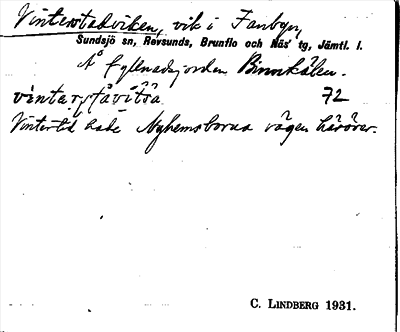 Vinterstadviken, vik i Fanbyn,
Sundsjö sn, Revsunds, Brunflo och Näs' tg, Jämtl. l.
Å fyllnadsjorden Binnkälen.
72
Vintertid hade Nyhemsborna vägen häröver.
C. LINDBERG 1931.